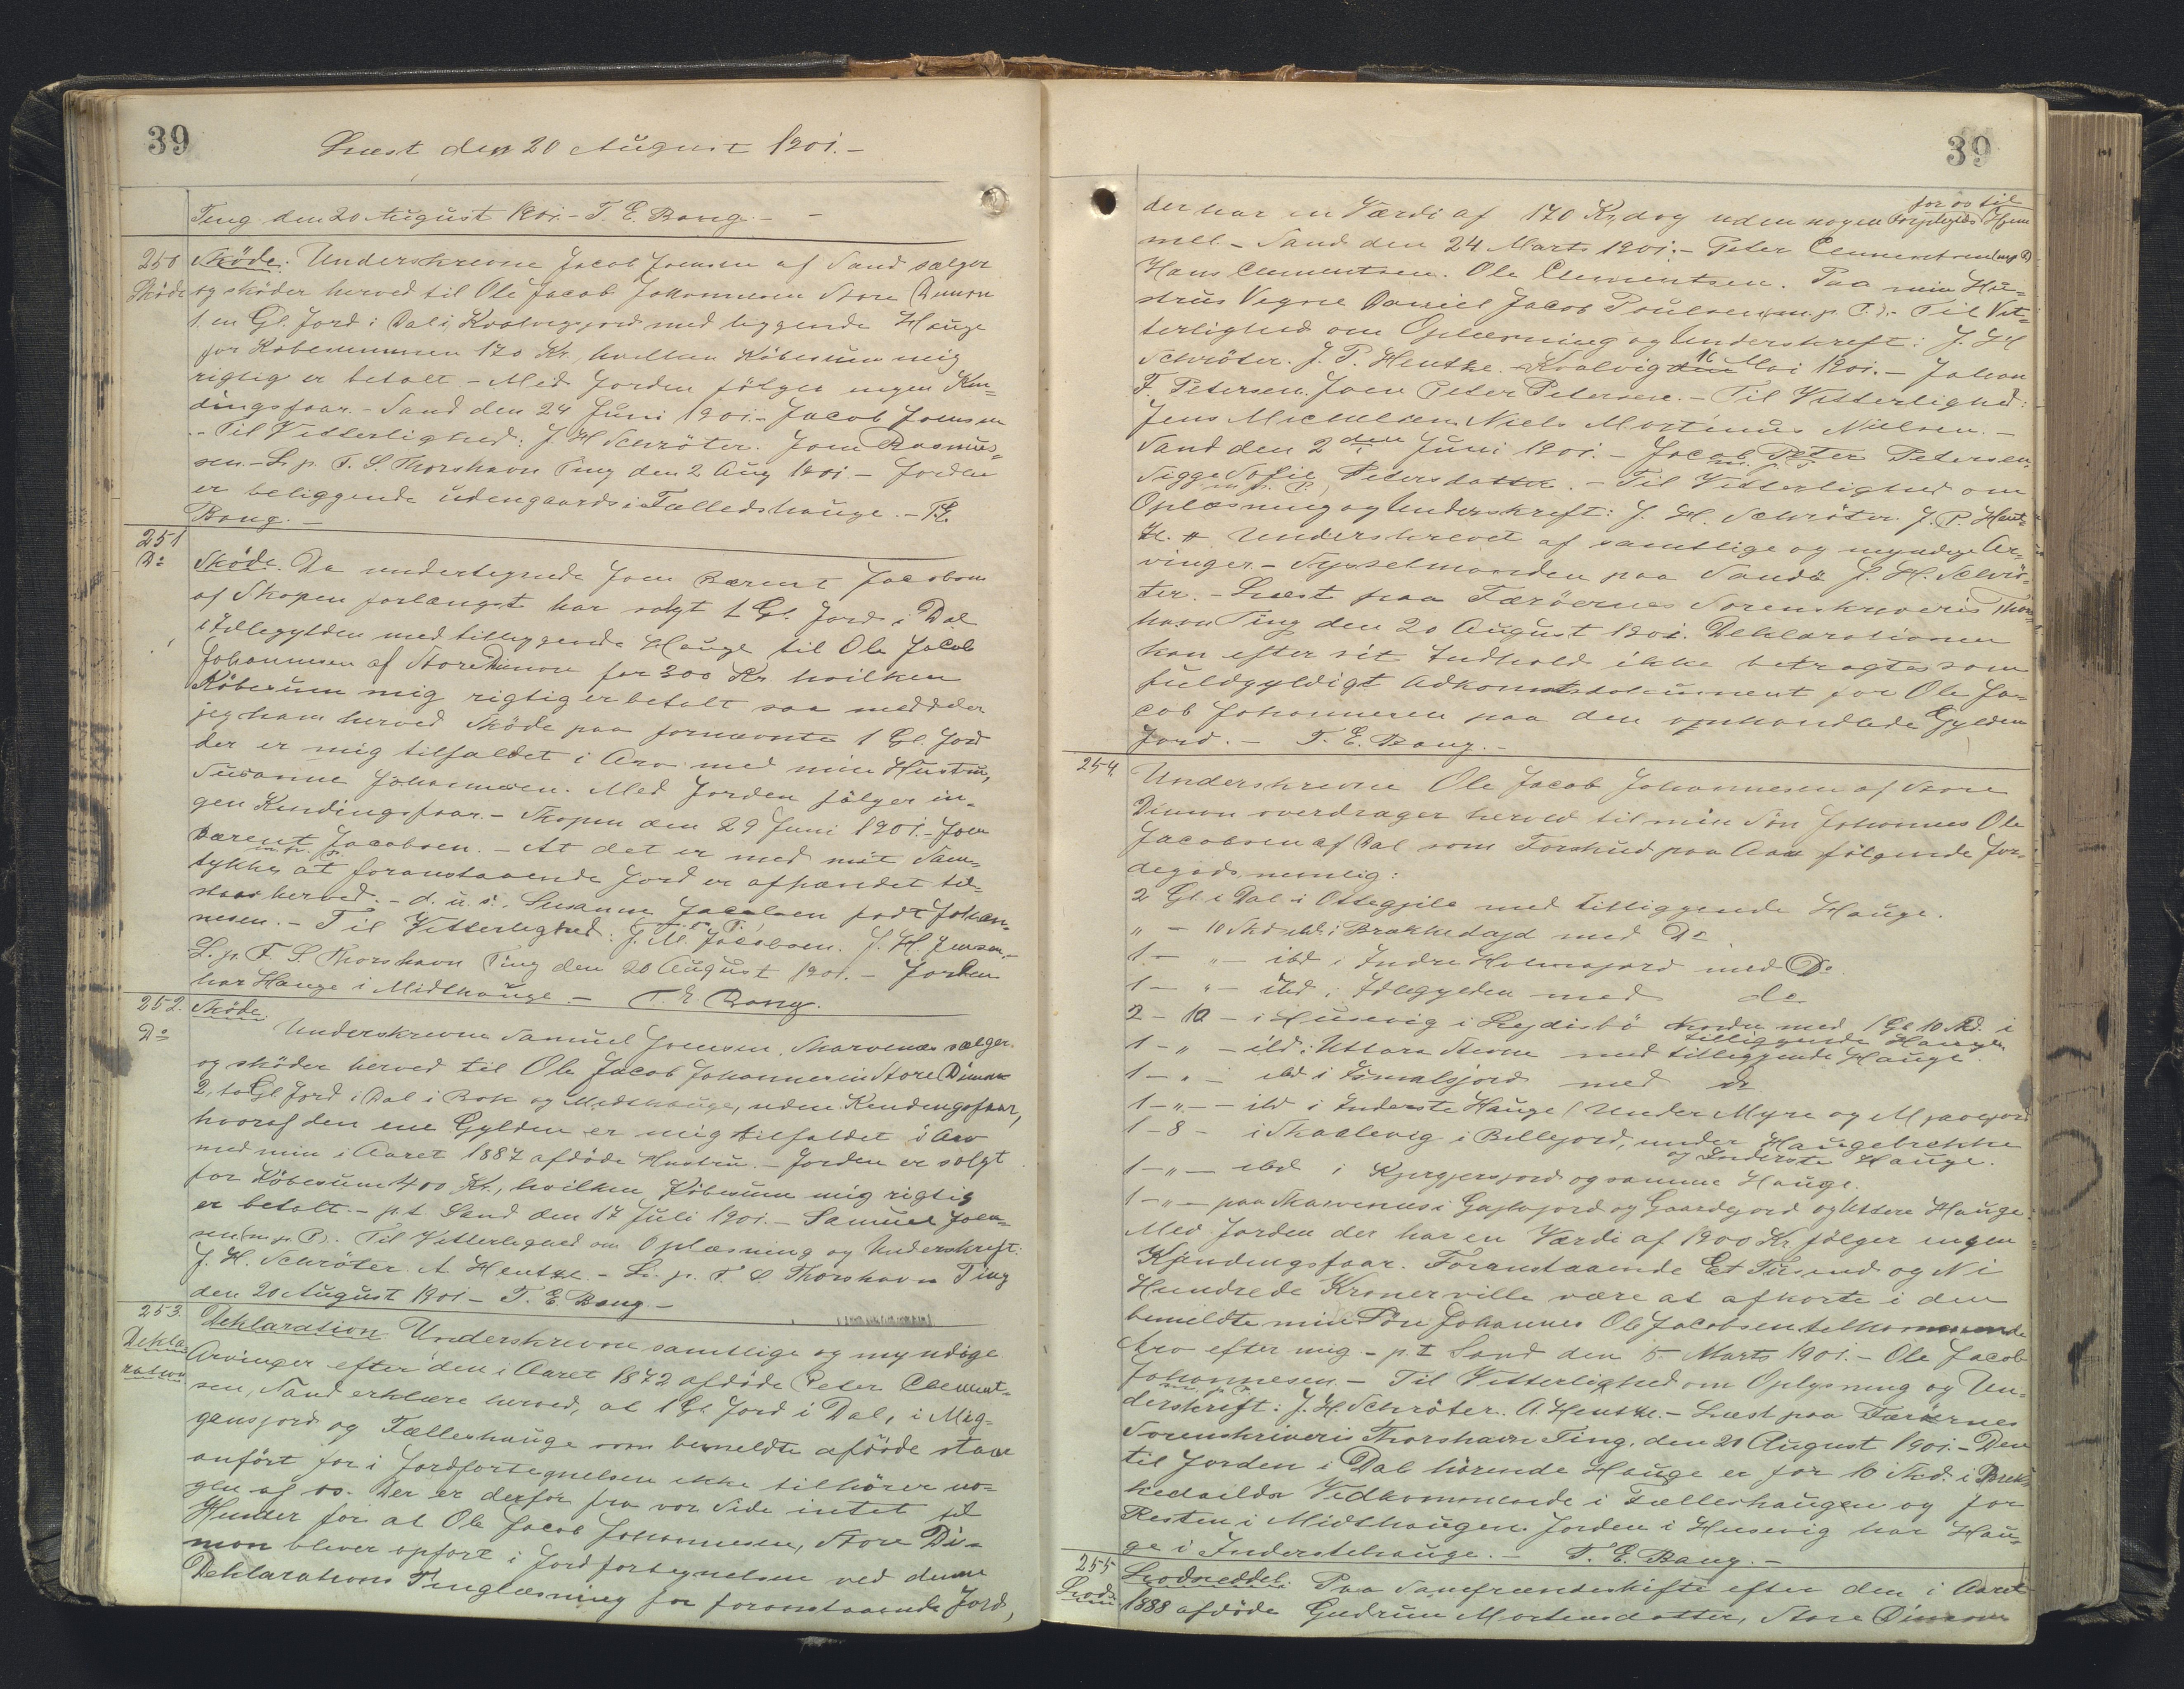 39
Læst den 20 August 1901.-
Ting den 20 August 1901.- T. E. Bang.- -
250 Skøde. Underskrevne Jacob Joensen af Sand sælger
Skøde og skøder herved til Ole Jacob Johannesen Store Dimon
1 en Gl. Jord i Dal i Kvalvigsjord med liggende Hauge
for Købesummen 170 Kr., hvilken Købesum mig
rigtig er betalt.- Med Jorden følger ingen Ken-
dingsfaar.- Sand den 24 Juni 1901.- Jacob Joensen
.- Til Vitterlighed: J. H. Schrøter. Joen Rasmus-
sen.- L. p. F. S. Thorshavn Ting den 2 Aug 1901 - Jorden
er beliggende udengaards i Fælledshauge.- T. E.
Bang.-
251
Do Skøde. Da undertegnede Joen Barent Jacobsen
af Skopen forlængst har solgt 1 Gl. Jord i Dal
i Idlegylden med tilliggende Hauge til Ole Jacob
Johannesen af Store Dimon for 200 Kr. hvilken
Købesum mig rigtig er betalt saa meddeler
jeg ham herved Skøde paa fornævnte 1 Gl. Jord
der er mig tilfaldet i Arv med min Hustru,
Susanne Johannesen. Med Jorden følger in-
gen Kendingsfaar.- Skopen den 29 Juni 1901.- Joen
Barent Jacobsen.- At det er med mit Sam-
m. p. P.
tykke, at foranstaaende Jord er afhændet til-
staas herved.- d. u. s. Susanne Jacobsen født Johan-
m. p. P.
nesen.- Til Vitterlighed: J. M. Jacobsen. J. H. Jensen.-
L. p. F. S. Thorshavn Ting den 20 August 1901.- Jorden
har Hauge i Midthauge.- T. E. Bang.
252. Skøde.
Do Underskrevne Samuel Joensen, Skarvenæs sælger
og skøder herved til Ole Jacob Johannesen Store Dimon
2, to Gl Jord i Dal i Bok og Midthauge, uden Kendingsfaar,
hvoraf den ene Gylden er mig tilfaldet i Arv
med min i Aaret 1887 afdøde Hustru.- Jorden er solgt
for Købesum 400 Kr., hvilken Købesum mig rigtig
er betalt.- p.t. Sand den 17 Juli 1901.- Samuel Joen-
sen (m. p. P). Til Vitterlighed om Oplæsning og Underskrift:
J. H. Schrøter. A. Hentze.- L. p. F. S Thorshavn Ting
den 20 August 1901 - T. E Bang.-
253. Deklaration Underskrevne samtlige og myndige
Dekla- Arvinger efter den i Aaret 1872 afdøde Peter Clement-
ration sen, Sand erklære herved, at 1 Gl. Jord i Dal, i Mig-
gansjord og Fælleshauge som bemeldte afdøde staar
anført for i Jordfortegnelsen ikke tilhører no-
gen af os. Der er derfor fra vor Side intet til
Hinder for at Ole Jacob Johannesen, Store Di-
mon bliver opført i Jordfortegnelsen ved denne
Deklarations Tinglæsning for foranstaaende Jord,
39
for os til
der har en Værdi af 170 Kr, dog uden nogen Forpligtelse Hjem
mel.- Sand den 24 Marts 1901.- Peter Clementsen (m p P)
Hans Clementsen. Ole Clementsen. Paa min Hu-
strus Vegne Daniel Jacob Poulsen (m. p. P.).- Til Vit-
terlighed om Oplæsning og Underskrift: J. H
Schrøter. J. P. Hentze.- Kvalvig den 16 Mai 1901.- Johan
F. Petersen. Joen Peter Petersen.- Til Vitterlighed:
Jens Michelsen. Niels Mortinus Nielsen.-
Sand den 2den Juni 1901.- Jacob Peter Petersen.
m. p. P
Sigge Sofie Petersdatter.- Til Vitterlighed om
m. p. P.
Oplæsning og Underskrift: J. H. Schrøter. J. P. Hent-
ze. Underskrevet af samtlige og myndige Ar-
vinger - Sysselmanden paa Sandø J. H. Schrø-
ter.- Læst paa Færøernes Sorenskriveris Thors-
havn Ting den 20 August 1901. Deklarationen
kan efter sit Indhold ikke betragtes som
fuldgyldigt Adkomstdokument for Ole Ja-
cob Johannesen paa den omhandlede Gylden
Jord.- T. E. Bang.-
254. Underskrevne Ole Jacob Johannesen af Store
Dimon overdrager herved til min Søn Johannes Ole
Jacobsen af Dal som Forskud paa Arv følgende Jor-
degods, nemlig:
2 Gl. i Dal i Ottegjile med tilliggende Hauge.
" - 10 Skd ibd i Brekkedajd med Do
1 - " - ibd i Indre Holmajord med Do.
1 - " - ibd. i Idlegylden med do
2 - 10 - i Husevig i Lejdisbø med 1 Gl 10 Skd. i
tilliggende Haugen
1 - " - ibd. i Uttara Stevne med tilliggende Hauge.
1 - " - ibd i Ismalsjord med do
1 - " - - ibd i Inderste Hauge (Under Myre og Mjaavejord
1 - 8 - i Skaalevig i Billejord, under Haugebrekke
og Inderste Hauge.
1 - " - ibd i Kjergjersjord og samme Hauge.
1 - " - paa Skarvenæs i Gajlajord og Gaardejord og Uttere Hauge.
Med Jorden der har en Værdi af 1900 Kr. følger ingen
Kjendingsfaar. Foranstaaende Et Tusend og Ni
Hundrede Kroner ville være at afkorte i den
bemeldte min Søn Johannes Ole Jacobsen tilkommende
Arv efter mig.- p.t Sand den 5 Marts 1901.- Ole Jacob
Johannesen.- Til Vitterlighed om Oplysning og Un-
m. p. P.
derskrift: J. H. Schrøter. A. Hentze.- Læst paa Færøernes
Sorenskriveris Thorshavn Ting, den 20 August 1901.- Den
til Jorden i Dal hørende Hauge er for 10 Skd. i Brek-
kedailda Vedkommende i Fælleshaugen og for
Resten i Midthaugen. Jorden i Husevig har Hau-
ge i Inderstehauge.- T. E. Bang.-
255 Lodseddel. Paa Samfrændeskifte efter den i Aaret
Lods- 1888 afdøde Gudrun Mortensdatter, Store Dimon